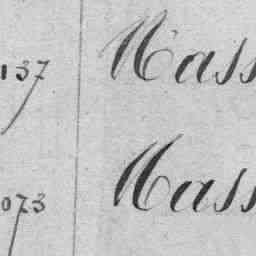 137 Mass
073 Mass